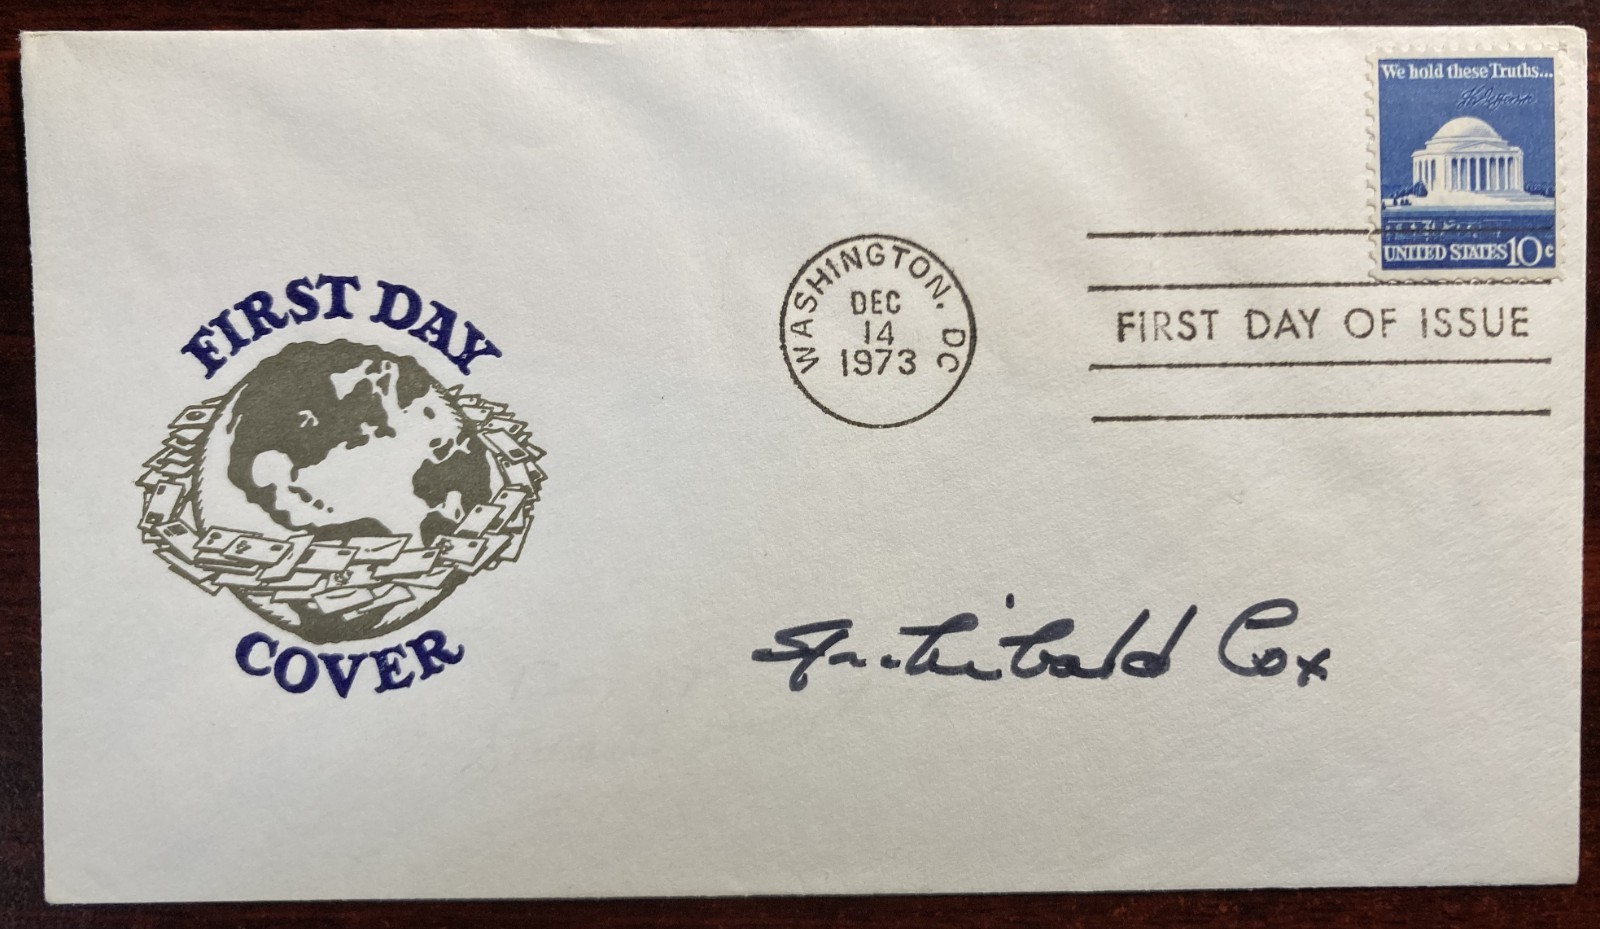 We hold these Truths...
UNITED STATES 10c
WASHINGTON, DC
DEC
14
1973
FIRST DAY OF ISSUE
FIRST DAY
COVER
Archibald Cox